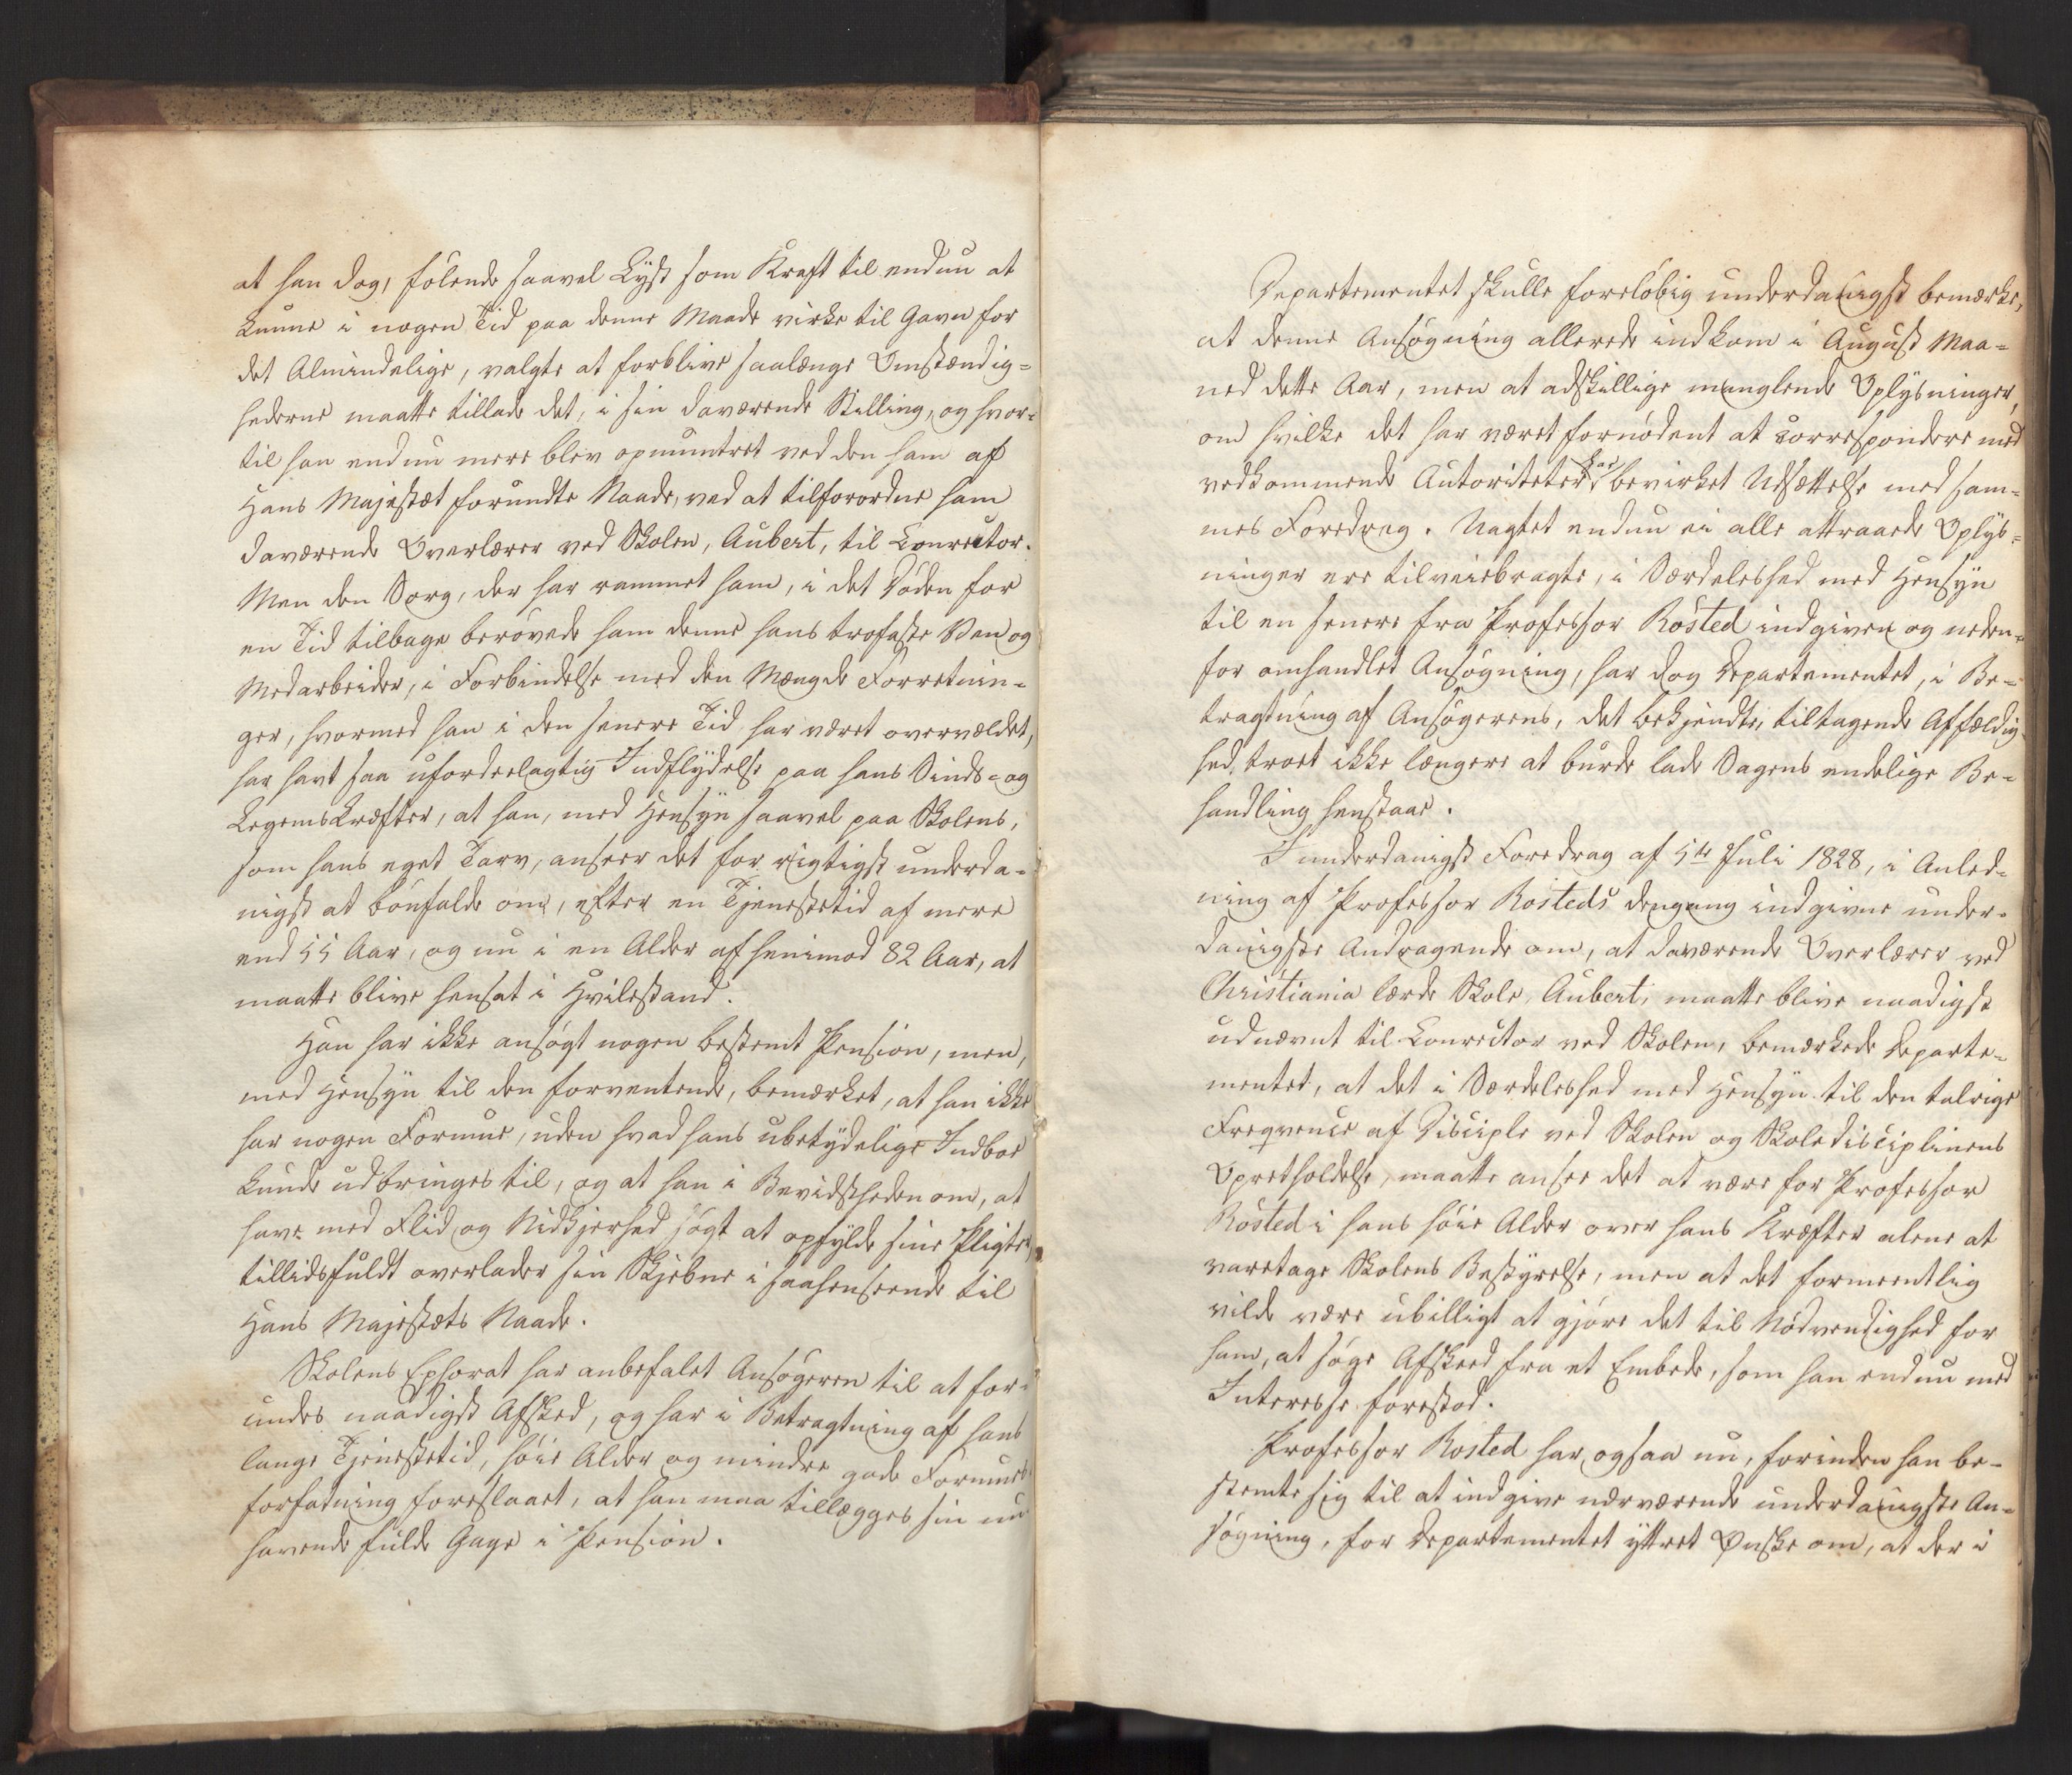 at han dog, følende saavel Lyst som Kraft til endnu at
kunne i nogen Tid paa denne Maade virke til Gavn for
det Almindelige, valgte at forblive saalænge Omstændig-
hederne maatte tillade det, i sin daværende Stilling, og hvor-
til han endnu mere blev opmuntret ved den ham af
Hans Majestæt forundte Naade, ved at tilforordne ham
daværende Overlærer ved Skolen, Aubert, til Conrector.
Men den Sorg, der har rammet ham, i det Døden for
en Tid tilbage berøvede ham denne hans trofaste Ven og
Medarbeider, i Forbindelse med den Mængde Forretnin-
ger, hvormed han i den senere Tid har været overvældet,
har havt saa ufordeelagtig Indflydelse paa hans Sinds- og
Legemskræfter, at han, med Hensyn saavel paa Skolens,
som hans eget Tarv, anseer det for rigtigst underda-
nigst at bønfalde om, efter en Tjenestetid af mere
end 55 Aar, og nu i en Alder af henimod 82 Aar, at
maatte blive hensat i Hvilestand.
Han har ikke ansøgt nogen bestemt Pension, men,
med Hensyn til den forventende, bemærket, at han ikke
har nogen Formue, uden hvad hans ubetydelige Indboe
kunde udbringes til, og at han i Bevidstheden om, at
have med Flid og Nidkjerhed søgt at opfylde sine Pligter,
tillidsfuldt overlader sin Skjebne i saahenseende til
Hans Majestæts Naade.
Skolens Ephorat har anbefalet Ansøgeren til at for-
undes naadigst Afsked, og har i Betragtning af hans
lange Tjenestetid, høie Alder og mindre gode Formues-
forfatning foreslaaet, at han maa tillægges sin nu
havende fulde Gage i Pension.
Departementet skulle foreløbig underdanigst bemærke,
at denne Ansøgning allerede indkom i August Maa-
ned dette Aar, men at adskillige manglende Oplysninger,
om hvilke det har været fornødent at correspondere med
vedkommende Autoriteter, har bevirket Udsættelse med sam-
mes Foredrag. Uagtet endnu ei alle attraaede Oplys-
ninger ere tilveiebragte, i Særdeleshed med Hensyn
til en senere fra Professor Rosted indgiven og neden-
for omhandlet Ansøgning, har dog Departementet, i Be-
tragtning af Ansøgerens, det bekjendte, tiltagende Affældig-
hed, troet ikke længere at burde lade Sagens endelige Be-
handling henstaae.
I underdanigst Foredrag af 5te Juli 1828, i Anled-
ning af Professor Rosteds dengang indgivne under-
danigste Andragende om, at daværende Overlærer ved
Christiania lærde Skole, Aubert, maatte blive naadigst
udnævnt til Conrector ved Skolen, bemærkede Departe-
mentet, at det i Særdeleshed med Hensyn til den talrige
Freqvence af Disciple ved Skolen og Skoledisciplinens
Opretholdelse, maatte ansee det at være for Professor
Rosted i hans høie Alder over hans Kræfter alene at
varetage Skolens Bestyrelse, men at det formeentlig
vilde være ubilligt at gjøre det til Nødvendighed for
ham, at søge Afskeed fra et Embede, som han endnu med
Interesse forestod.
Professor Rosted har ogsaa nu, forinden han be-
stemte sig til at indgive nærværende underdanigste An-
søgning, for Departementet yttret Ønske om, at der i